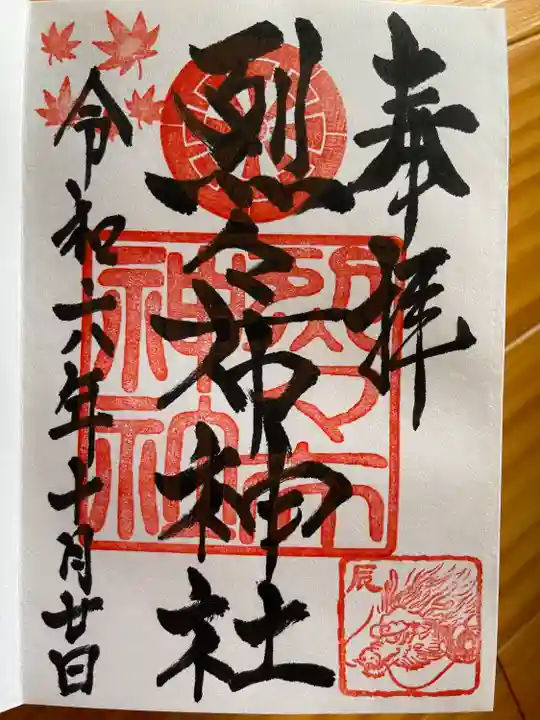 奉拝
烈々布神社
令和六年十月廿日
烈々布
神社
辰